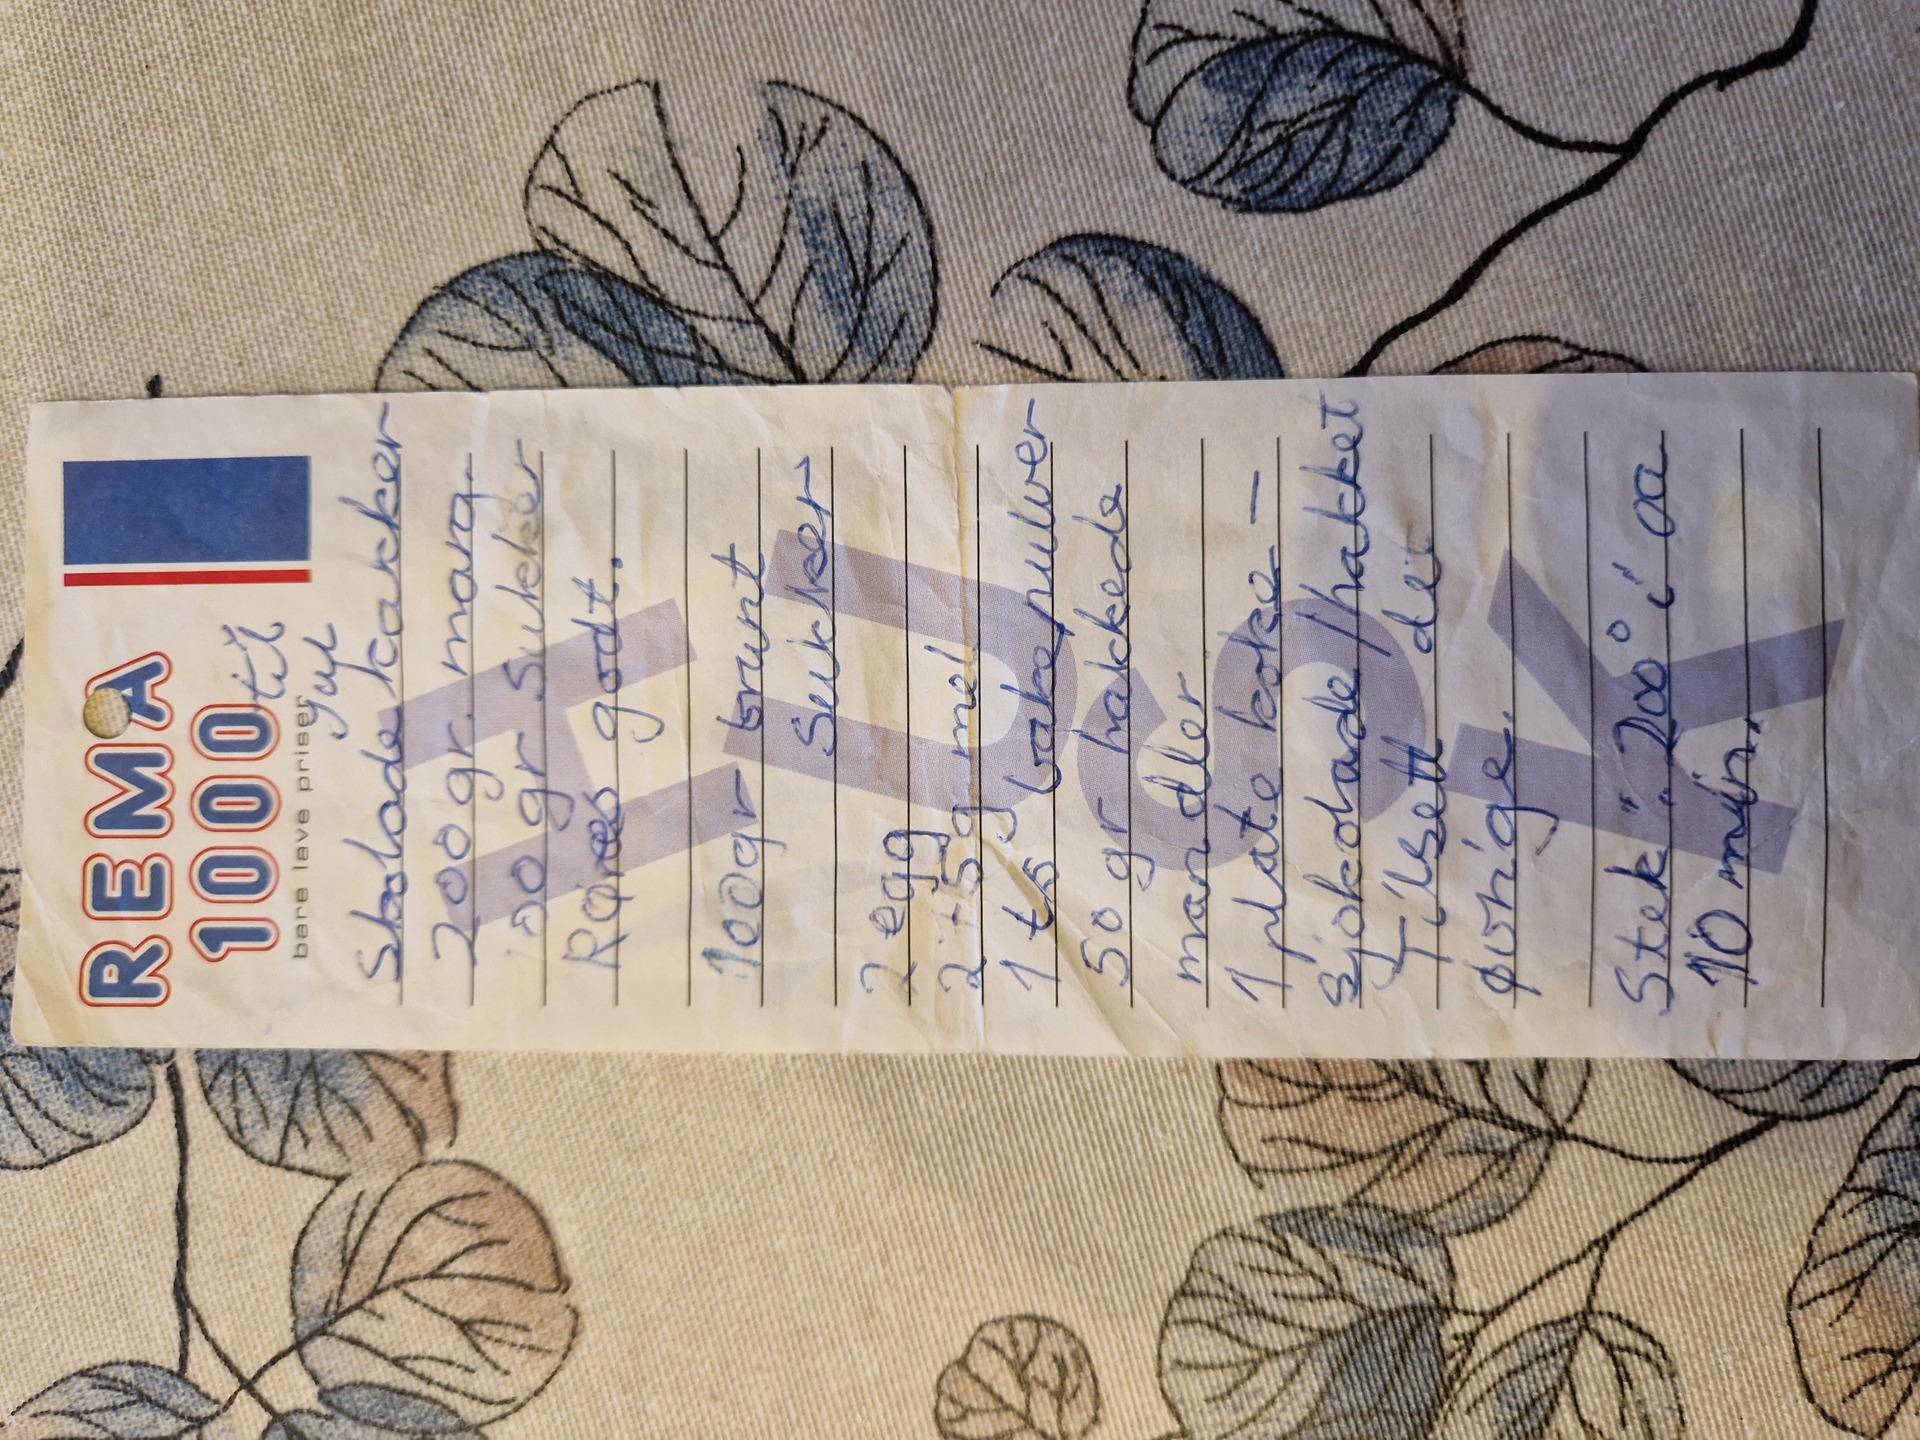 REMA
1000
bare lave priser
til
Jul
Skolade kakker
200 gr. marg.
100 gr Sukker
Røres godt.
100gr brunt
Sukker
2 egg
g mel
1 ts bakepulver
50 gr hakkede
mandler
1 plate koke-
sjokolade/hakket
Tilsett det
øvrige.
Stek: 200° i ca
10 min.
HUSK